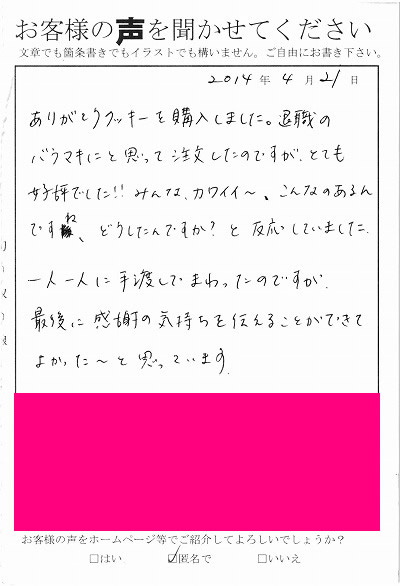 お客様の声を聞かせてください
文章でも箇条書きでもイラストでも構いません。ご自由にお書き下さい。
2014年 4月 21日
ありがとうクッキーを購入しました。退職の
バラマキにと思って注文したのですが、とても
好評でした!! みんな、カワイイ〜、こんなのあるん
ですね、どうしたんですか？と反応していました.
一人一人に手渡しでまわったのですが、
最後に感謝の気持ちを伝えることができて
よかった〜と思っています.
お客様の声をホームページ等でご紹介してよろしいでしょうか？
□はい ☑匿名で □いいえ